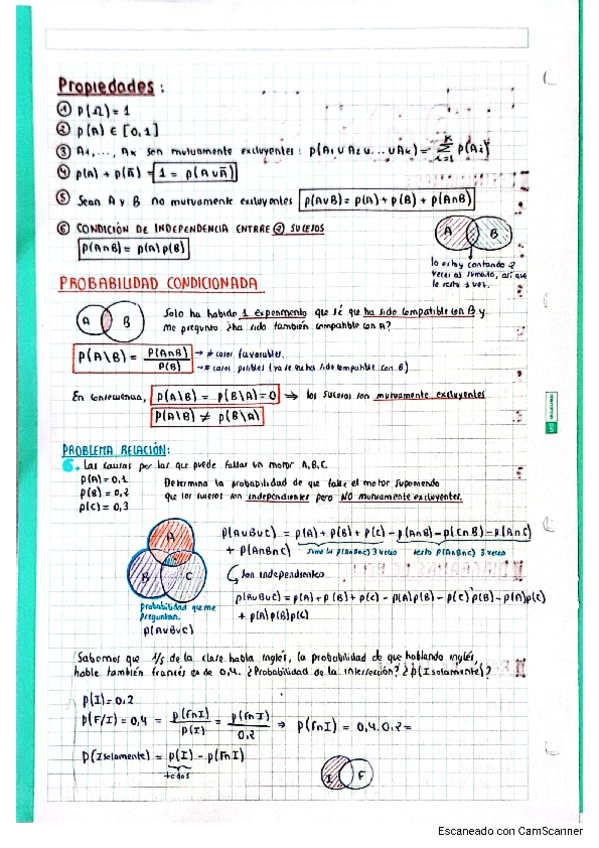 Propiedades:
① p(Ω) = 1
② p(A) ∈ [0,1]
③ A₁,..., Aₖ son mutuamente excluyentes: p(A₁ ∪ A₂ ∪ ... ∪ Aₖ) = Σ p(Aᵢ)
④ p(A) + p(Ā) = 1 = p(A ∪ Ā)
⑤ Sean A y B no mutuamente excluyentes p(A∪B) = p(A) + p(B) + p(A∩B)
⑥ CONDICIÓN DE INDEPENDENCIA ENTRE ② SUCESOS
p(A∩B) = p(A) p(B)
A B
lo estoy contando 2
veces al sumarlo, así que
le resto 1 vez.
PROBABILIDAD CONDICIONADA
A B
Solo ha habido 1 experimento que sé que ha sido compatible con B y
me pregunto ¿ha sido también compatible con A?
p(A\B) = p(A∩B) / p(B)
→ # casos favorables.
→ # casos posibles (ya se que ha sido compatible con B)
En consecuencia, p(A\B) = p(B\A) = 0 → los sucesos son mutuamente excluyentes
p(A\B) ≠ p(B\A)
PROBLEMA RELACIÓN:
6. Las causas por las que puede fallar un motor A, B, C.
p(A) = 0,1 Determina la probabilidad de que falle el motor suponiendo
p(B) = 0,2 que los sucesos son independientes pero NO mutuamente excluyentes.
p(C) = 0,3
A
B C
p(A∪B∪C) = p(A) + p(B) + p(C) - p(A∩B) - p(C∩B) - p(A∩C)
+ p(A∩B∩C) sumo la p(A∩B∩C) 3 veces resto p(A∩B∩C) 3 veces
son independientes
p(A∪B∪C) = p(A) + p(B) + p(C) - p(A)p(B) - p(C)p(B) - p(A)p(C)
+ p(A)p(B)p(C)
probabilidad que me
preguntan.
p(A∪B∪C)
Sabemos que 1/5 de la clase habla inglés, la probabilidad de que hablando inglés,
hable también francés es de 0,4. ¿Probabilidad de la intersección? ¿p(I solamente)?
p(I) = 0,2
p(F/I) = 0,4 = p(F∩I) / p(I) = p(F∩I) / 0,2 ⇒ p(F∩I) = 0,4 · 0,2 =
p(I solamente) = p(I) - p(F∩I)
todos
I F
Escaneado con CamScanner